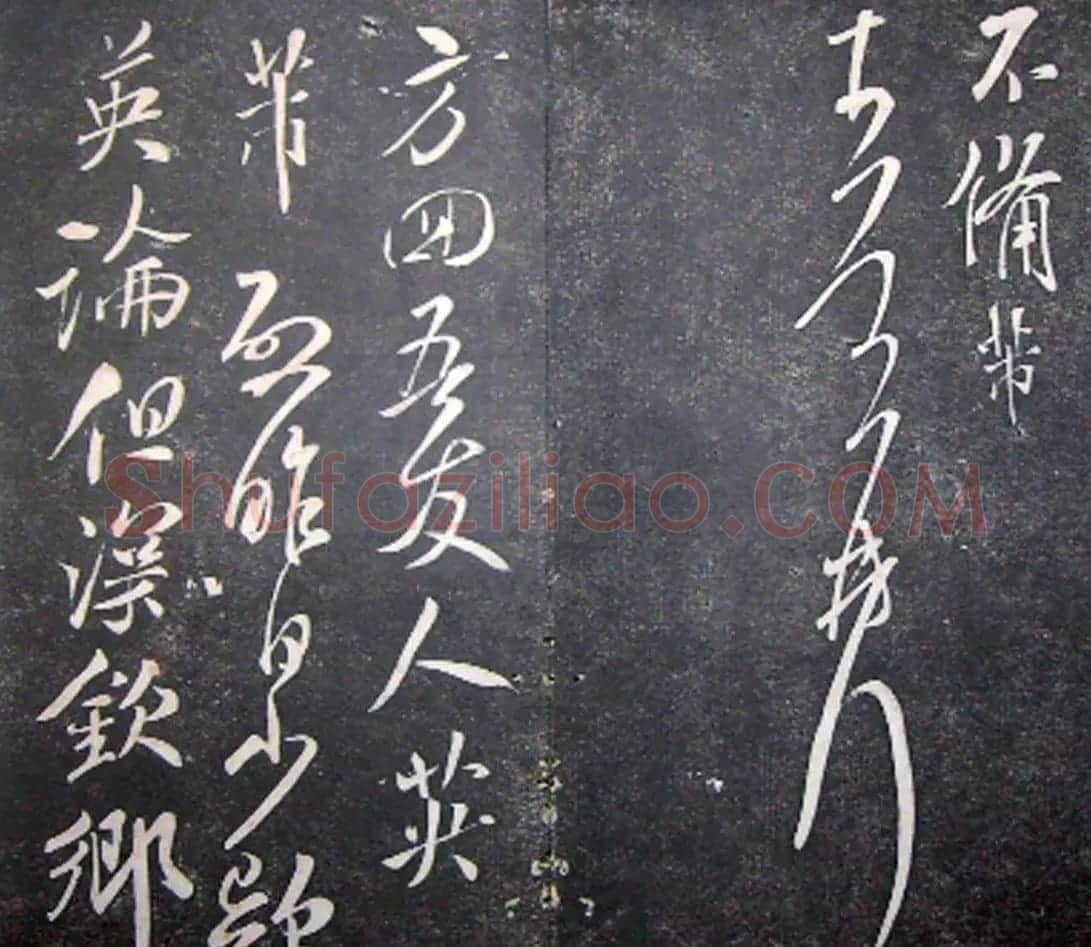 不備芾
方回吾友人英
芾 頓昨日少款
英論但深欽鄉
Shufaziliao.COM